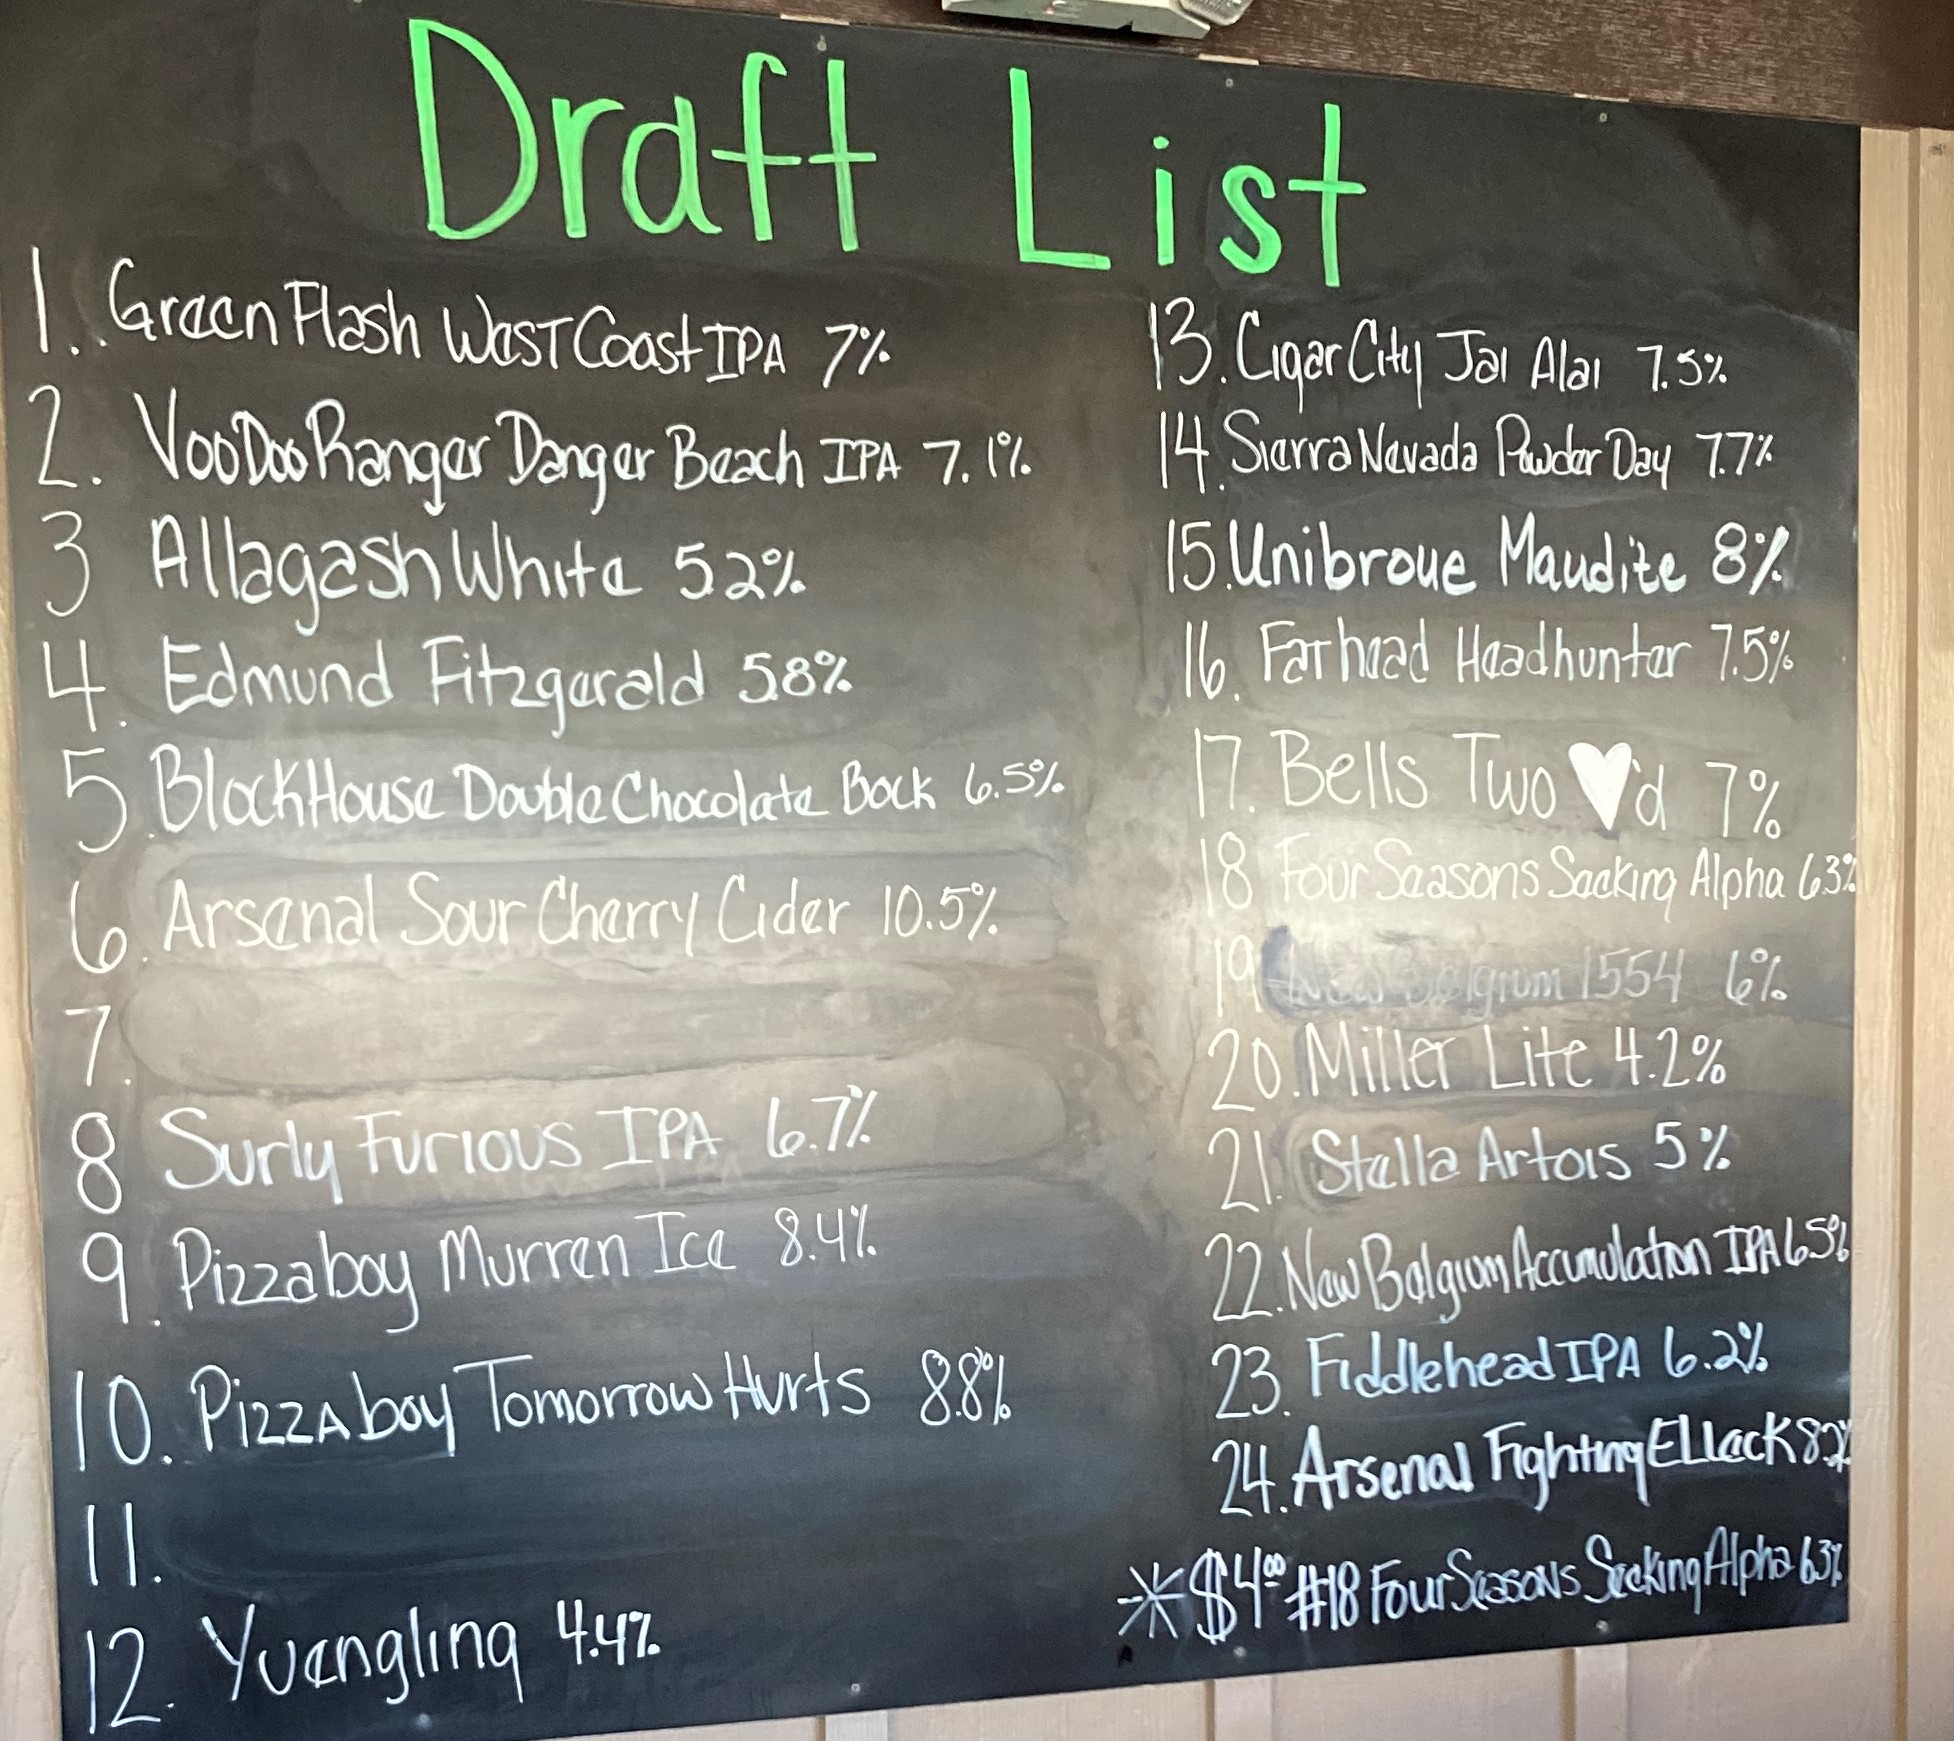 Draft List
1. Green Flash West Coast IPA 7%
2. VooDoo Ranger Danger Beach IPA 7.1%
3 Allagash White 5.2%
4. Edmund Fitzgerald 5.8%
5. BlockHouse Double Chocolate Bock 6.5%
6. Arsenal Sour Cherry Cider 10.5%
7.
8 Surly Furious IPA 6.7%
9. Pizzaboy Murren Ice 8.4%
10. Pizzaboy Tomorrow Hurts 8.8%
11.
12. Yuengling 4.4%
13. Cigar City Jai Alai 7.5%
14. Sierra Nevada Powder Day 7.7%
15. Unibroue Maudite 8%
16. Fathead Headhunter 7.5%
17. Bells Two ♥'d 7%
18 Four Seasons Seeking Alpha 6.3%
19 New Belgium 1554 6%
20. Miller Lite 4.2%
21. Stella Artois 5%
22. New Belgium Accumulation IPA 6.5%
23. Fiddlehead IPA 6.2%
24. Arsenal Fighting ELLeck 8.2%
* $4.00 #18 Four Seasons Seeking Alpha 6.3%